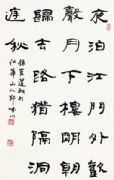 夜泊江門外歡
聲月下樓明朝
歸去路猶隔洞
庭秋